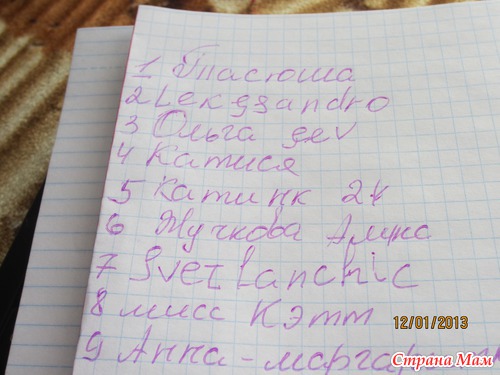 1 Тпасюша
2 Lekgsandro
3 Ольга gev
4 Катися
5 Катинк 24
6 Жучкова Алина
7 Svetlanchic
8 мисс Кэтт
9 Анна-
12/01/2013
Страна Мам